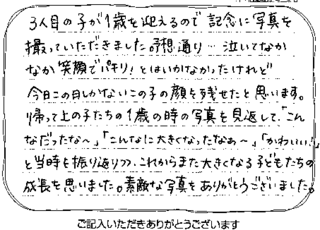 3人目の子が1歳を迎えるので記念に写真を
撮っていただきました。予想通り…泣いてなか
なか"笑顔でパチリ!とはいかなかったけれど
今日この日しかないこの子の顔を残せたと思います。
帰って上の子たちの1歳の時の写真を見返して、「こん
なだったな～」「こんなに大きくなったなぁ～」「かわいい!」
と当時を振り返りつつ、これからまた大きくなる子どもたちの
成長を思いました。素敵な写真をありがとうございました。
ご記入いただきありがとうございます